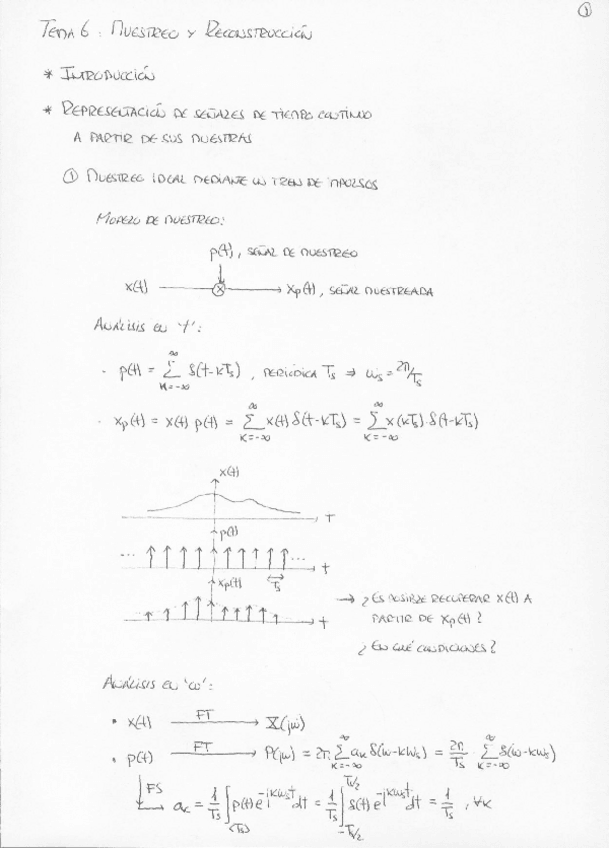 ①
TEMA 6: MUESTREO Y RECONSTRUCCIÓN
* INTRODUCCIÓN
* REPRESENTACIÓN DE SEÑALES DE TIEMPO CONTINUO
A PARTIR DE SUS MUESTRAS
① MUESTREO IDEAL MEDIANTE UN TREN DE IMPULSOS
MODELO DE MUESTREO:
p(t), SEÑAL DE MUESTREO
x(t) ⊗ xp(t), SEÑAL MUESTREADA
ANÁLISIS EN 't':
· p(t) = ∑_{k=-∞}^{∞} δ(t-kTs), PERIÓDICA Ts ⇒ ωs = 2π/Ts
· xp(t) = x(t) p(t) = ∑_{k=-∞}^{∞} x(t) δ(t-kTs) = ∑_{k=-∞}^{∞} x(kTs)·δ(t-kTs)
x(t)
t
p(t)
... ...
t
Ts
xp(t)
t
→ ¿ES POSIBLE RECUPERAR x(t) A
PARTIR DE xp(t)?
¿EN QUÉ CONDICIONES?
ANÁLISIS EN 'ω':
• x(t) —FT→ X(jω)
• p(t) —FT→ P(jω) = 2π ∑_{k=-∞}^{∞} ak δ(ω-kωs) = 2π/Ts · ∑_{k=-∞}^{∞} δ(ω-kωs)
FS
→ ak = 1/Ts ∫_{(Ts)} p(t) e^{-jkωst} dt = 1/Ts ∫_{-Ts/2}^{Ts/2} δ(t) e^{-jkωst} dt = 1/Ts , ∀k